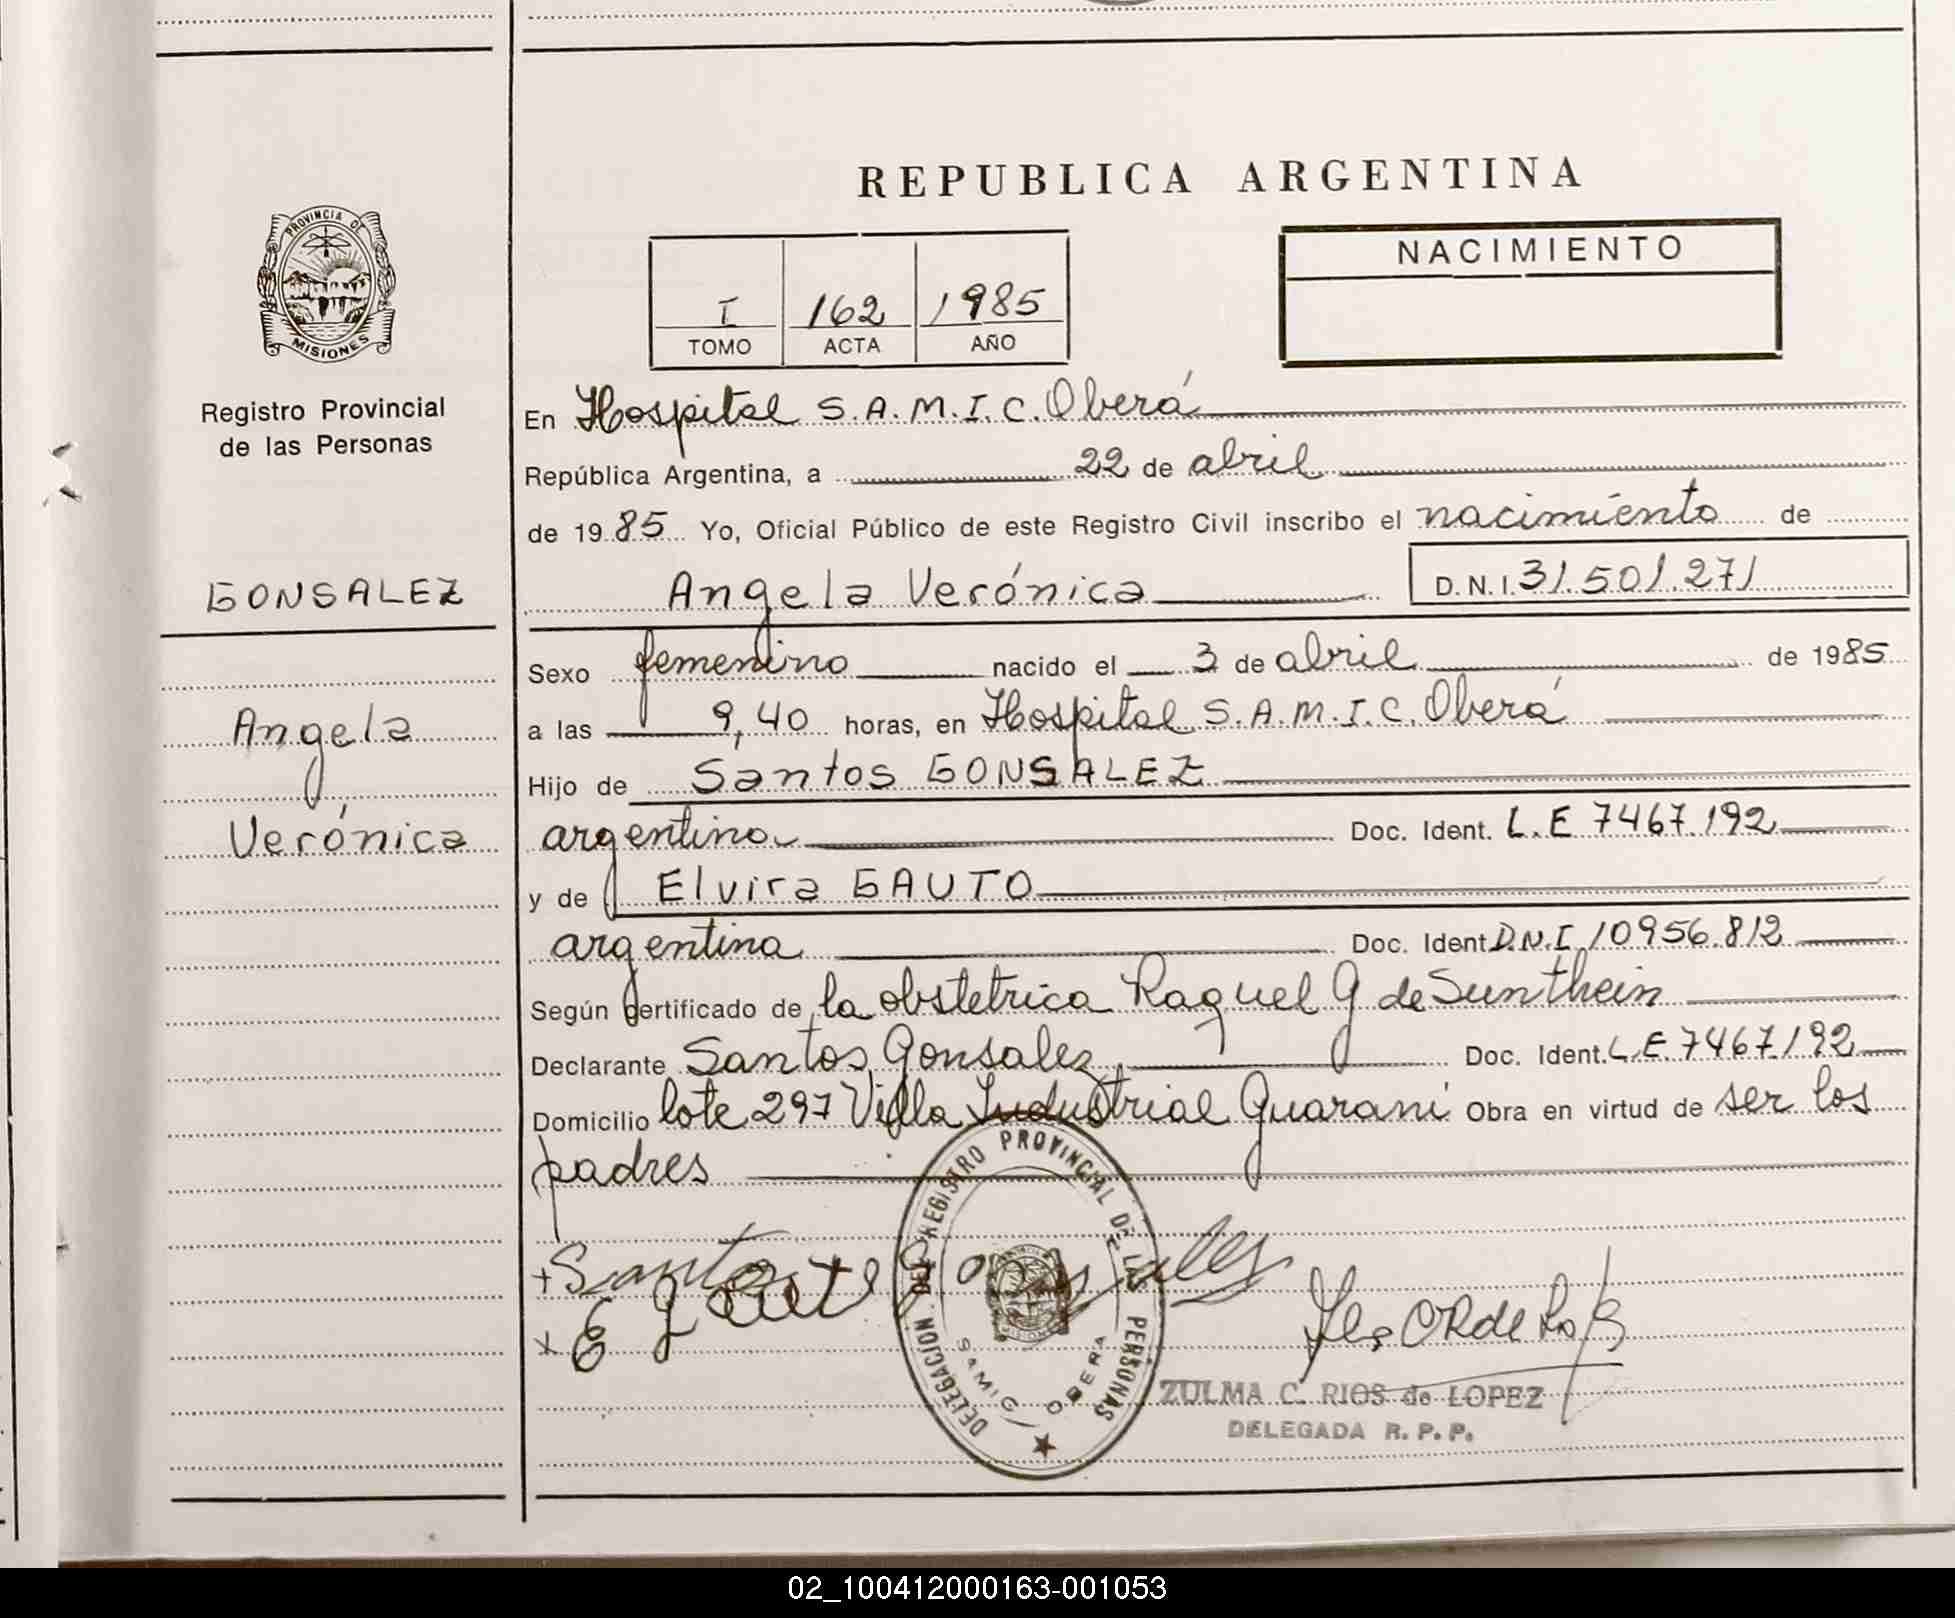 REPUBLICA ARGENTINA
PROVINCIA DE
MISIONES
Registro Provincial
de las Personas
GONSALEZ
Angela
Verónica
I 162 1985
TOMO ACTA AÑO
NACIMIENTO
En Hospital S.A.M.I.C. Oberá
República Argentina, a 22 de abril
de 1985 Yo, Oficial Público de este Registro Civil inscribo el nacimiento de
Angela Verónica D.N.I. 31.501.271
Sexo femenino nacido el 3 de abril de 1985
a las 9,40 horas, en Hospital S.A.M.I.C. Oberá
Hijo de Santos GONSALEZ
argentino Doc. Ident. L.E 7467.192
y de Elvira GAUTO
argentina Doc. Ident D.N.I 10956.812
Según certificado de la obstetrica Raquel G de Sunthein
Declarante Santos Gonsalez Doc. Ident. L.E. 7467192
Domicilio lote 297 Villa Industrial Guaraní Obra en virtud de ser los
padres
+ Santos Gonsales
x E Gauto
DELEGACION DEL REGISTRO PROVINCIAL DE LAS PERSONAS
SAMIC OBERA
ZULMA C. RIOS de LOPEZ
DELEGADA R. P. P.
02_100412000163-001053